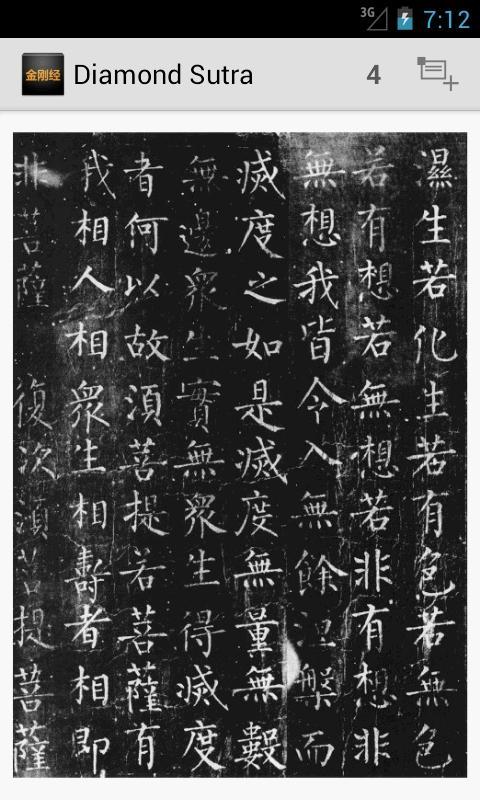 3G 7:12
金刚经 Diamond Sutra 4
濕生若化生若有色若無色
若有想若無想若非有想非
無想我皆令入無餘涅槃而
滅度之如是滅度無量無數
無邊衆生實無衆生得滅度
者何以故須菩提若菩薩有
我相人相衆生相壽者相即
非菩薩 復次須菩提菩薩